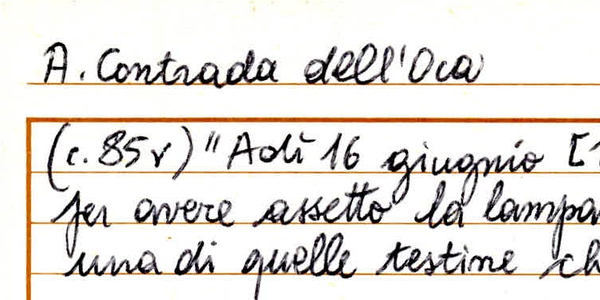 A. Contrada dell'Oca
(c. 85v) "Adì 16 giugnio [1
per avere assetto la lampa
una di quelle testine ch